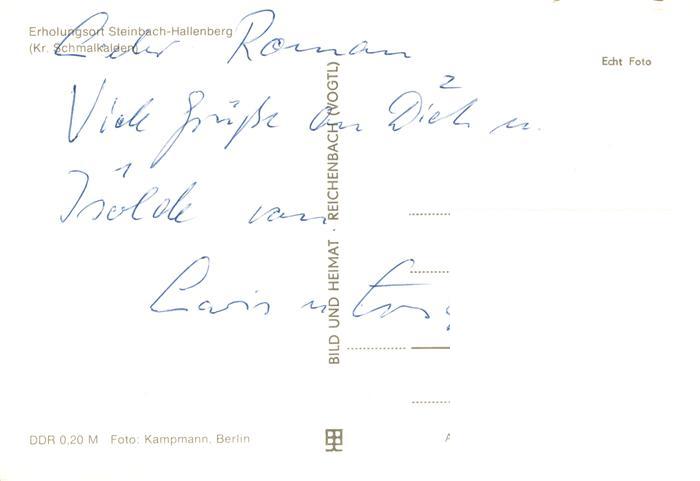 Erholungsort Steinbach-Hallenberg
(Kr. Schmalkalden)
Echt Foto
Lieber Roman
2
Viele Grüße an Dich u.
1
Isolde von
u
BILD UND HEIMAT · REICHENBACH (VOGTL)
DDR 0,20 M Foto: Kampmann, Berlin